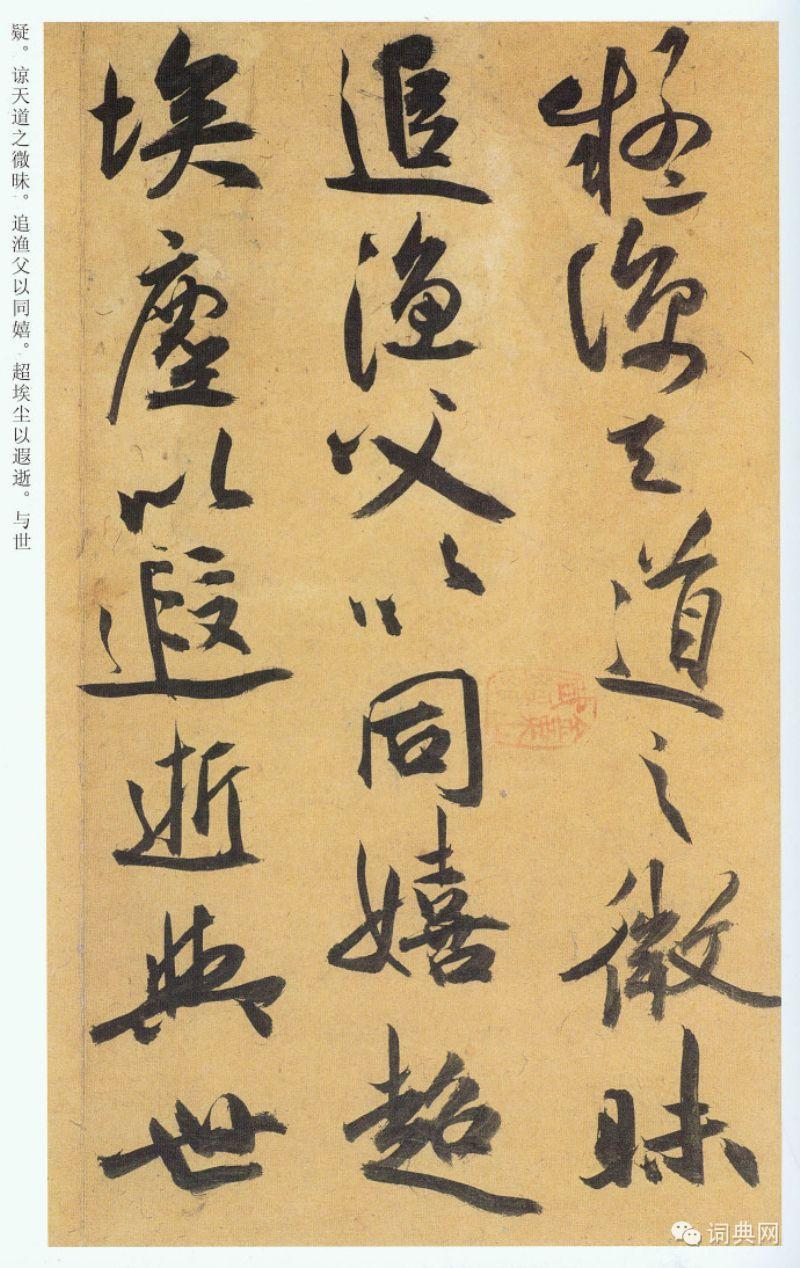 疑谅天道之微昧
追渔父以同嬉超
埃塵以遐逝與世
疑。谅天道之微昧。追渔父以同嬉。超埃尘以遐逝。与世
词典网